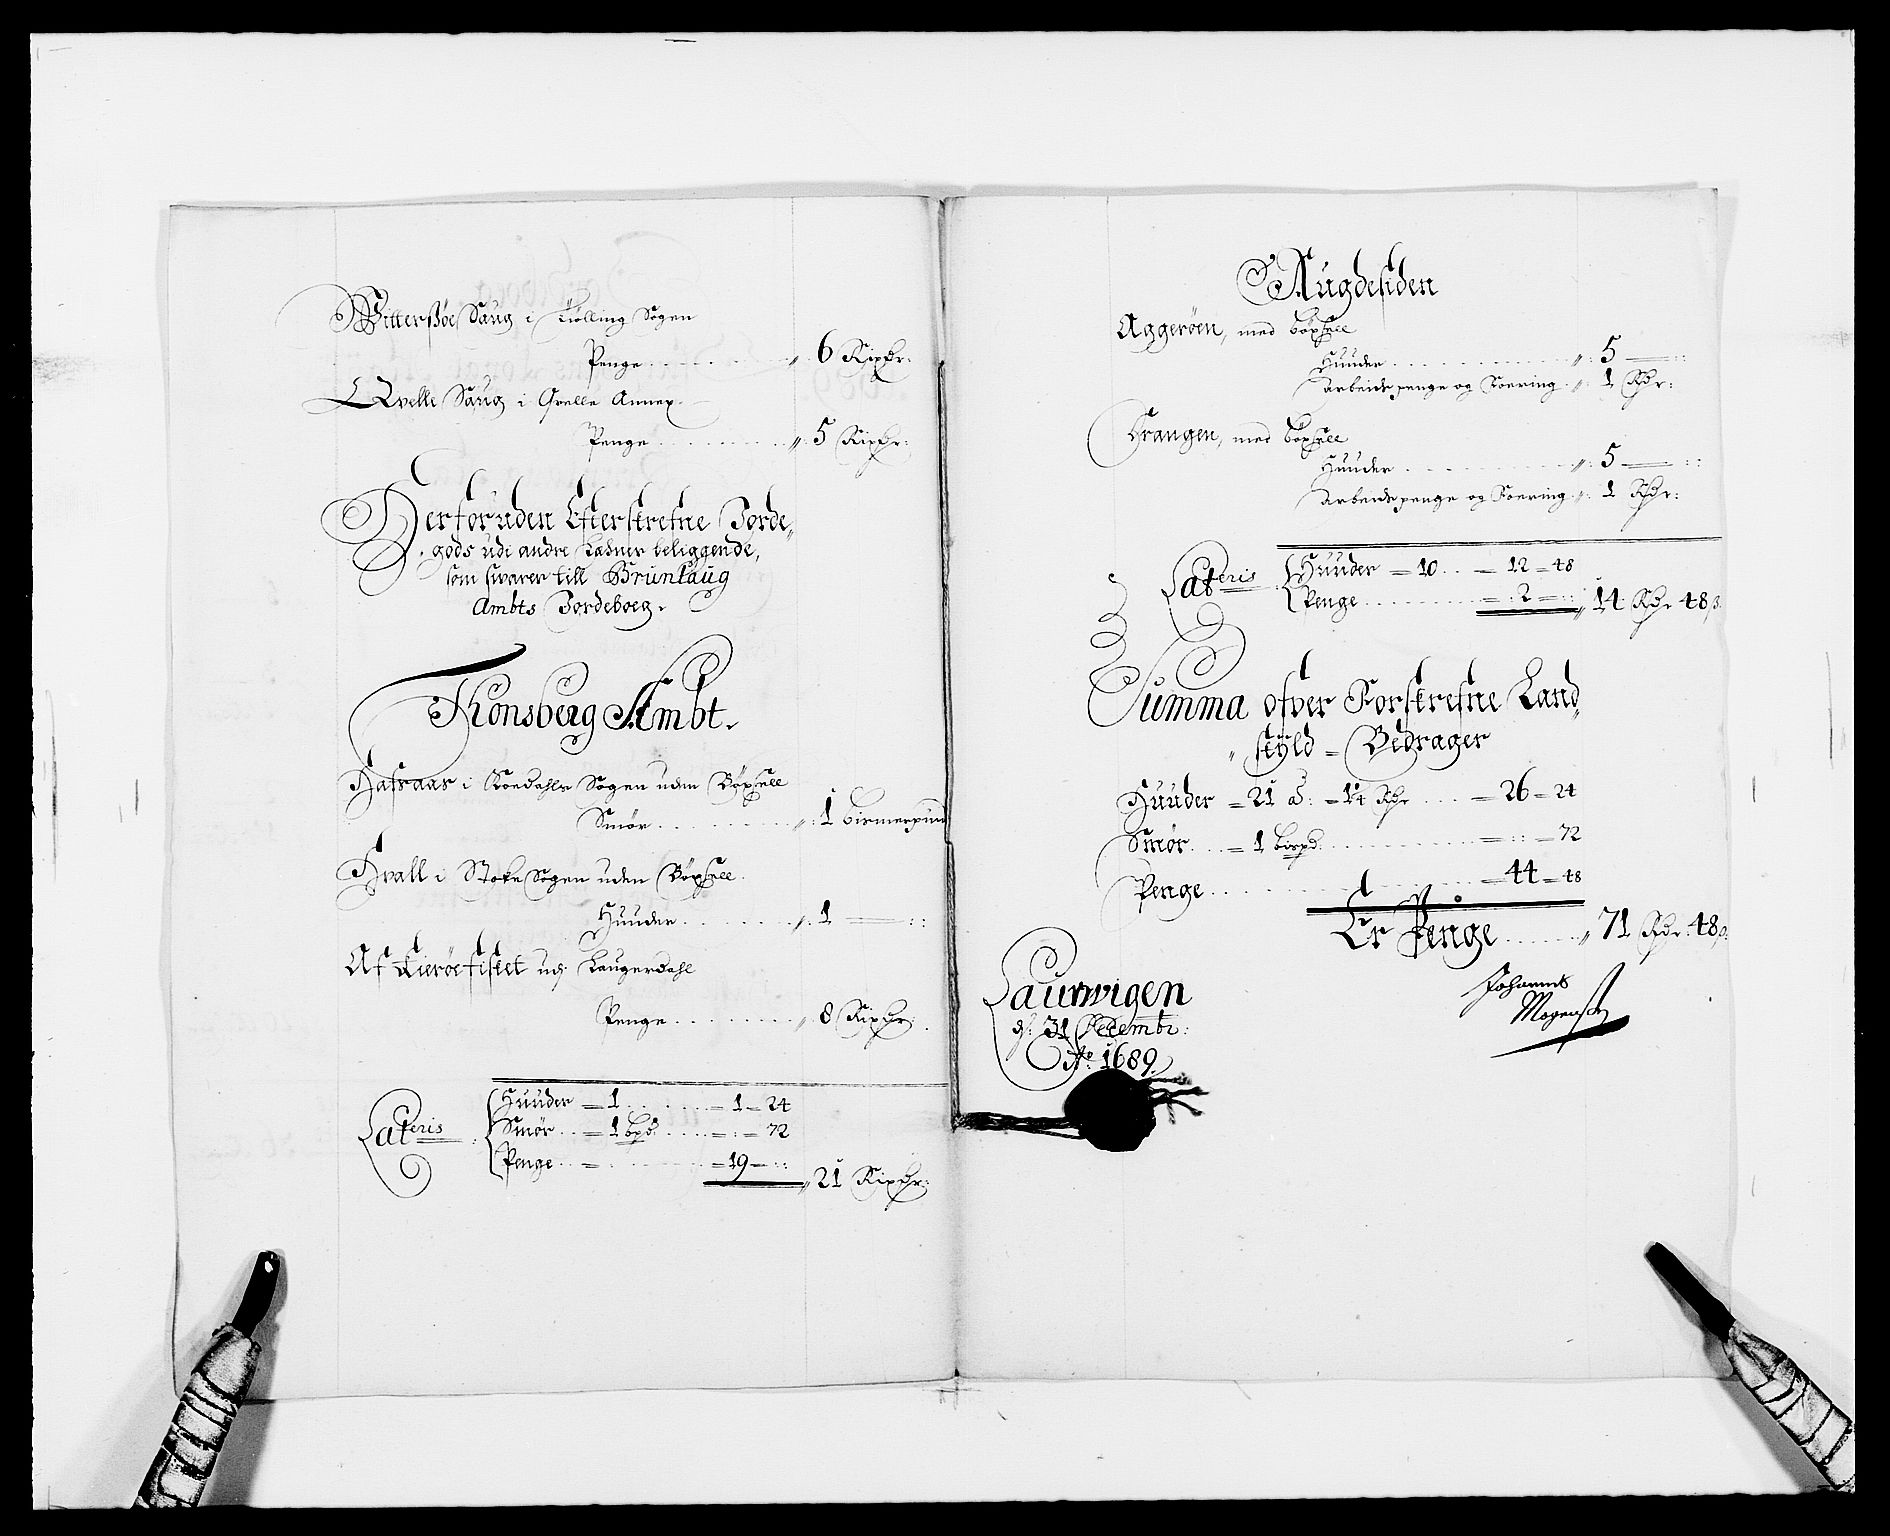 Witterßöe Saug i Tiølling Sogen
Penge . . . . . . . . . „ 6 Rixdr:
Qvelle Saug i Qvelle Annex.
Penge . . . . . . . . . „ 5 Rixdr:
Herforuden Efterskrefne Jorde„
gods udi andre Læhner beliggende,
som svarer till Brunlaug
Ambts Jordeboeg.
Thonsberg Ambt.
Hafsaas i Roedahls Sogen uden Böxsell
Smör . . . . . . . . „ 1 bismerpund
Hvall i Stoke Sogen uden Böxsell.
Huuder . . . . . . . „ 1 — ::
Af Kieröefisket udj Laugerdahl
Penge . . . . . . . „ 8 Rixdr:
Lateris
Huuder = 1 . . . . . = 1 = 24
Smör . . = 1 bpd: . . . . = : = 72
Penge . . = . . . . . = 19 = ::
„ 21 Rixdr:
Augdesiden
Aggeröen, med böxsell
Huuder . . . . . . . . . . „ 5 — ::
Arbeids penge og Foering „ 1 Rdr:
Hrangen, med böxsell
Huuder . . . . . . . . „ 5 — ::
Arbeids penge og Foering „ 1 Rdr:
Lateris
Huuder = 10 . . = 12 = 48
Penge . . . . . . . . = : 2 = ::
„ 14 Rdr 48 β.
Summa ofver Forskrefne Land„
„ skyld = Bedrager
Huuder = 21 a: = 1¼ Rdr . . . = 26 = 24
Smör . . = 1 bispd: . . . . . . . = :: = 72
Penge . . . . . . . . . . = 44 = 48
Er Penge . . . . . „ 71 Rdr: 48 β:
Laurwigen
d: 31 Decembr:
Ao: 1689.
Johannes
Mogensen